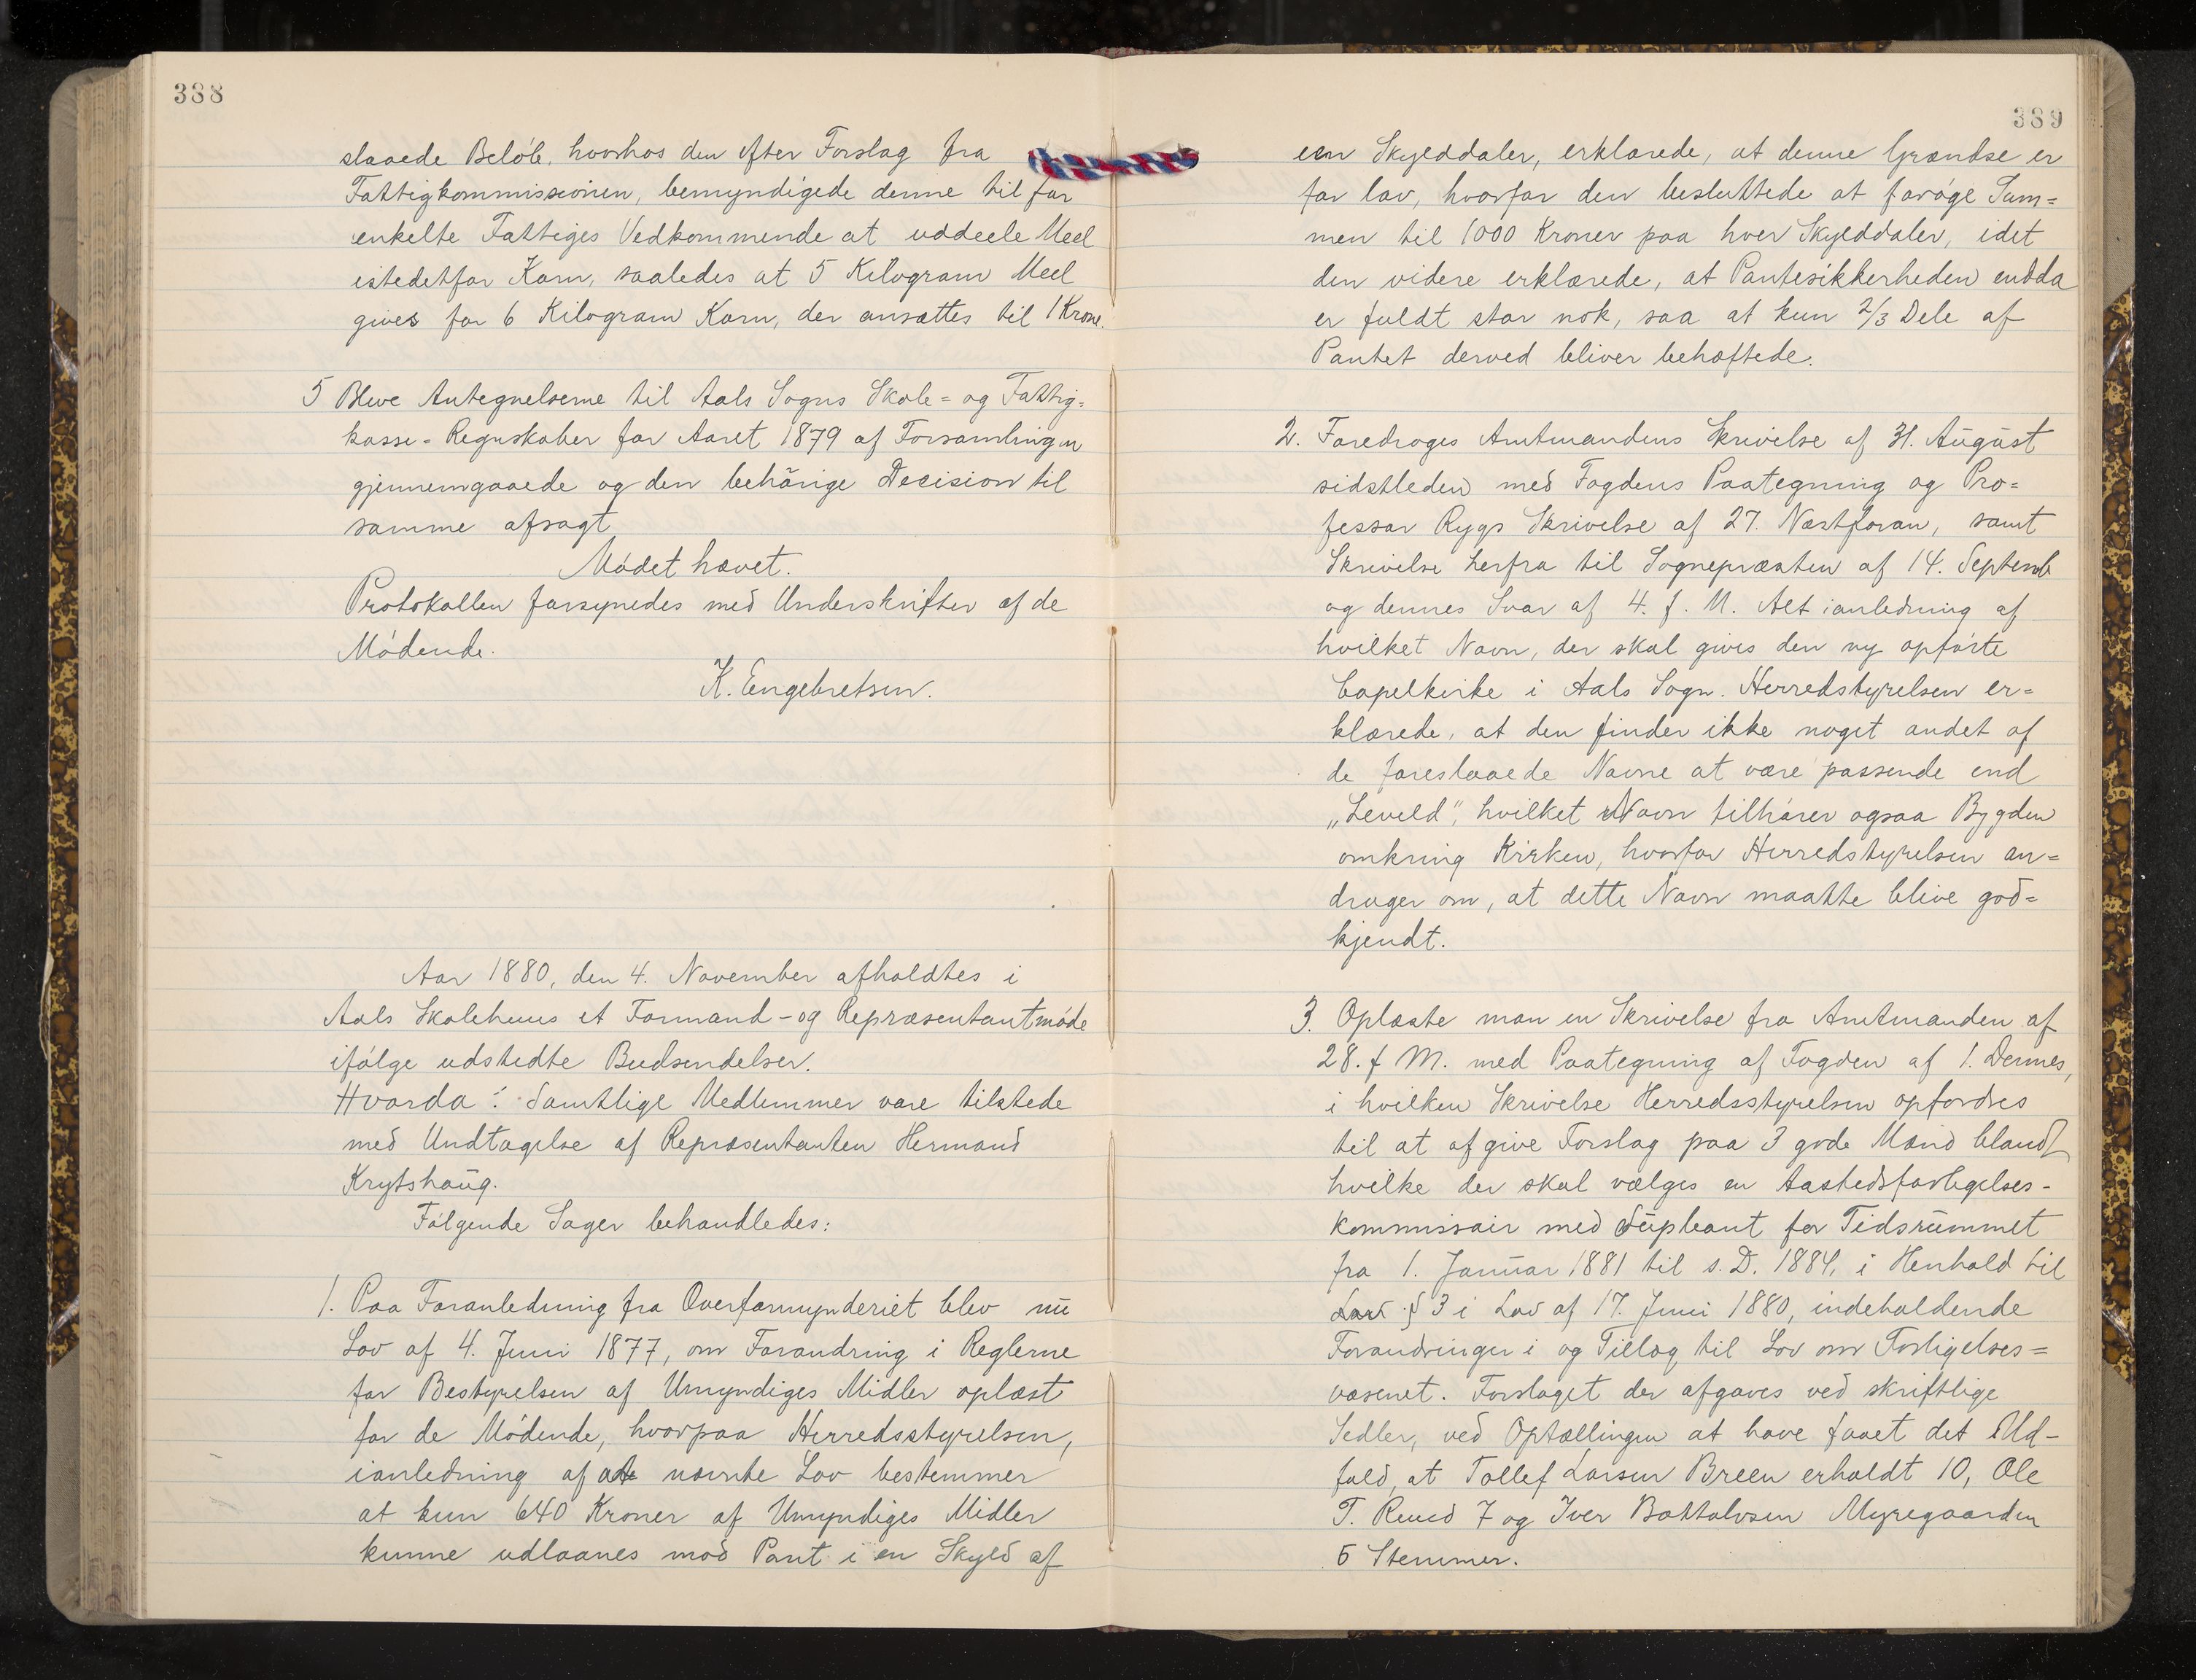 388
slaaede Beløb, hvorhos den efter Forslag fra
Fattigkommissionen, bemyndigede denne til for
enkelte Fattiges Vedkommende at uddeele Meel
istedetfor Korn, saaledes at 5 Kilogram Meel
gives for 6 Kilogram Korn, der ansættes til 1 Krone.
5 Bleve Antegnelserne til Aals Sogns Skole= og Fattig=
kasse=Regnskaber for Aaret 1879 af Forsamlingen
gjennemgaaede og den behørige Decision til
samme afsagt
Mødet hævet.
Protokollen forsynedes med Underskrifter af de
Mødende.
K. Engebretsen.
Aar 1880, den 4. November afholdtes i
Aals Skolehuus et Formand-og Repræsentantmøde
ifølge udstedte Budsendelser.
Hvorda: Samtlige Medlemmer vare tilstede
med Undtagelse af Repræsentanten Hermand
Krytshaug.
Følgende Sager behandledes:
1. Paa Foranledning fra Overformynderiet blev nu
Lov af 4. Juni 1877, om Forandring i Reglerne
for Bestyrelsen af Umyndiges Midler oplæst
for de Mødende, hvorpaa Herredsstyrelsen,
ianledning af at nævnte Lov bestemmer
at kun 640 Kroner af Umyndiges Midler
kunne udlaanes mod Pant i en Skyld af
389
een Skylddaler, erklærede, at denne Grændse er
for lav, hvorfor den besluttede at forøge Sum=
men til 1000 Kroner paa hver Skylddaler, idet
den videre erklærede, at Pantesikkerheden endda
er fuldt stor nok, saa at kun 2/3 Dele af
Pantet derved bliver behæftede.
2. Foredroges Amtmandens Skrivelse af 31. August
sidstleden med Fogdens Paategning og Pro=
fessor Rygs Skrivelse af 27. Næstforan, samt
Skrivelse herfra til Sognepræsten af 14. Septemb
og dennes Svar af 4. f. M. Alt ianledning af
hvilket Navn, der skal gives den ny opførte
Capelkirke i Aals Sogn. Herredstyrelsen er=
klærede, at den finder ikke noget andet af
de foreslaaede Navne at være passende end
„Leveld", hvilket Navn tilhører ogsaa Bygden
omkring Kirken, hvorfor Herredstyrelsen an=
drager om, at dette Navn maatte blive god=
kjendt.
3. Oplæste man en Skrivelse fra Amtmanden af
28. f M. med Paategning af Fogden af 1. Dennes,
i hvilken Skrivelse Herredsstyrelsen opfordres
til at afgive Forslag paa 3 gode Mænd blandt
hvilke der skal vælges en Aastedsforligelses-
kommissair med Supleant for Tidsrummet
fra 1. Januar 1881 til s. D. 1884, i Henhold til
Lov § 3 i Lov af 17. Juni 1880, indeholdende
Forandringer i og Tillæg til Lov om Forligelses=
væsenet. Forslaget der afgaves ved skriftlige
Sedler, ved Optællingen at have faaet det Ud-
fald, at Tollef Larsen Breen erholdt 10, Ole
T. Ruud 7 og Iver Bottolvsen Myregaarden
5 Stemmer.